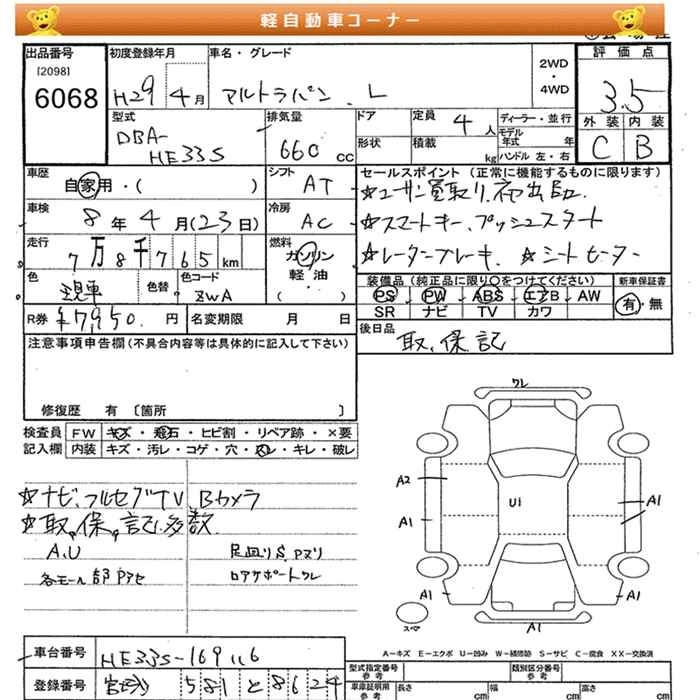 軽自動車コーナー
出品番号
[2098]
6068
初度登録年月
H29 4月
車名・グレード
アルトラパン L
2WD
・
4WD
評価点
3.5
型式
DBA-
HE33S
排気量
660 cc
ドア
形状
定員 4人
積載 kg
ディーラー・並行
モデル
年式 年
ハンドル 左・右
外装 内装
C B
車歴
自家用・( )
シフト
AT
セールスポイント(正常に機能するものに限ります)
☆ユーザー買取り、初出品
☆スマートキー、プッシュスタート
☆レーダーブレーキ ☆シートヒーター
車検
8年4月(23日)
冷房
AC
走行
7万8千765km
燃料
ガソリン
軽油
( )
色
現車
色替
色コード
ZWA
装備品(純正品に限り○をつけてください)
PS PW ABS エアB AW
SR ナビ TV カワ
新車保証書
有・無
R券 ¥7,950. 円
名変期限 月 日
後日品
取、保、記
注意事項申告欄(不具合内容等は具体的に記入して下さい)
修復歴 有 〔箇所 〕
検査員 FW キズ・飛石・ヒビ割・リペア跡・×要
記入欄 内装 キズ・汚レ・コゲ・穴・スレ・キレ・破レ
☆ナビ、フルセグTV、Bカメラ
☆取、保、記、多数
A.U
足廻りS、アリ
ロアサポートワレ
ワレ
A2
U1
A1
A1
A1
A1
スペア
A1
A=キズ E=エクボ U=凹み W=補修跡 S=サビ C=腐食 XX=交換済
車台番号 HE33S-169116
登録番号 宮崎 581 と 8624
型式指定番号
参考
類別区分番号
参考
車庫証明用
参考
長さ cm
幅 cm
高さ cm